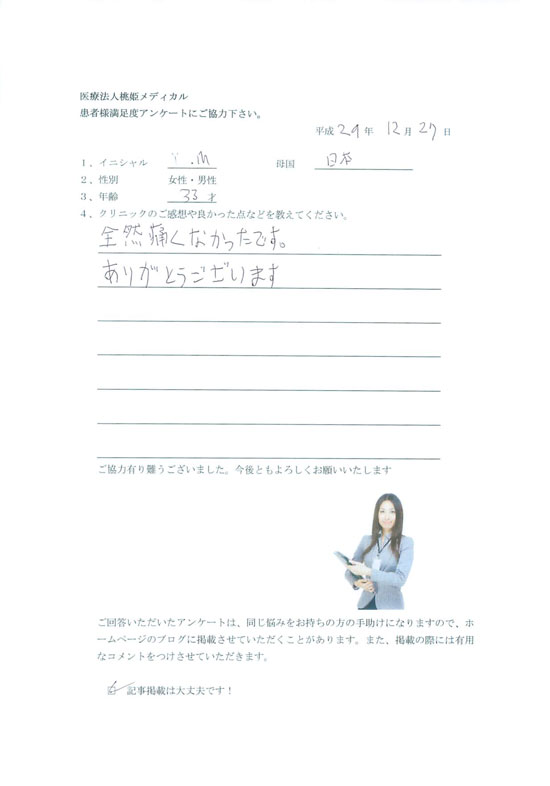 医療法人桃姫メディカル
患者様満足度アンケートにご協力下さい。
平成 29 年 12 月 27 日
1、イニシャル .M 母国 日本
2、性別 女性・男性
3、年齢 33 才
4、クリニックのご感想や良かった点などを教えてください。
全然痛くなかったです。
ありがとうございます
ご協力有り難うございました。今後ともよろしくお願いいたします
ご回答いただいたアンケートは、同じ悩みをお持ちの方の手助けになりますので、ホ
ームページのブログに掲載させていただくことがあります。また、掲載の際には有用
なコメントをつけさせていただきます。
記事掲載は大丈夫です！